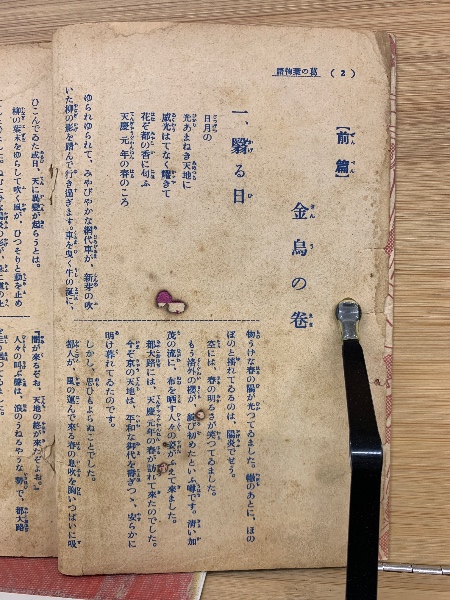 （２） 葛の葉物語
【前篇】
金烏の巻
一、翳る日
日月の
光あまねき天地に
威光はてなく耀きて
花ぞ都の香に匂ふ
天慶元年の春のころ
ゆられゆられて、みやびやかな網代車が、新芽の吹
いた柳の影を踏んで行き過ぎます。車を曳く牛の涎に、
物うげな春の陽が光つてゐました。轍のあとに、ほの
ぼのと揺れてゐるのは、陽炎でせう。
空には、春の明るさが笑つてゐました。
もう洛外の桜が、綻び初めたといふ噂です。清い加
茂の流に、布を晒す人々の姿がふえて来ました。
都大路には、天慶元年の春が訪れて来たのでした。
今ぞ京の天地は、平和な御代を寿ぎつゝ、安らかに
明け暮れてゐたのです。
しかし、思ひもよらぬことでした。
都人が、風の運んで来る春の息吹を胸いつぱいに吸
ひこんでゐた或日、天に異変が起らうとは。
柳の葉末をゆらして吹く風が、ひつそりと動を止め
『闇が来るぞお。天地の終が来たぞよお。』
人々の叫ぶ声は、浪のうねるやうな勢で、都大路